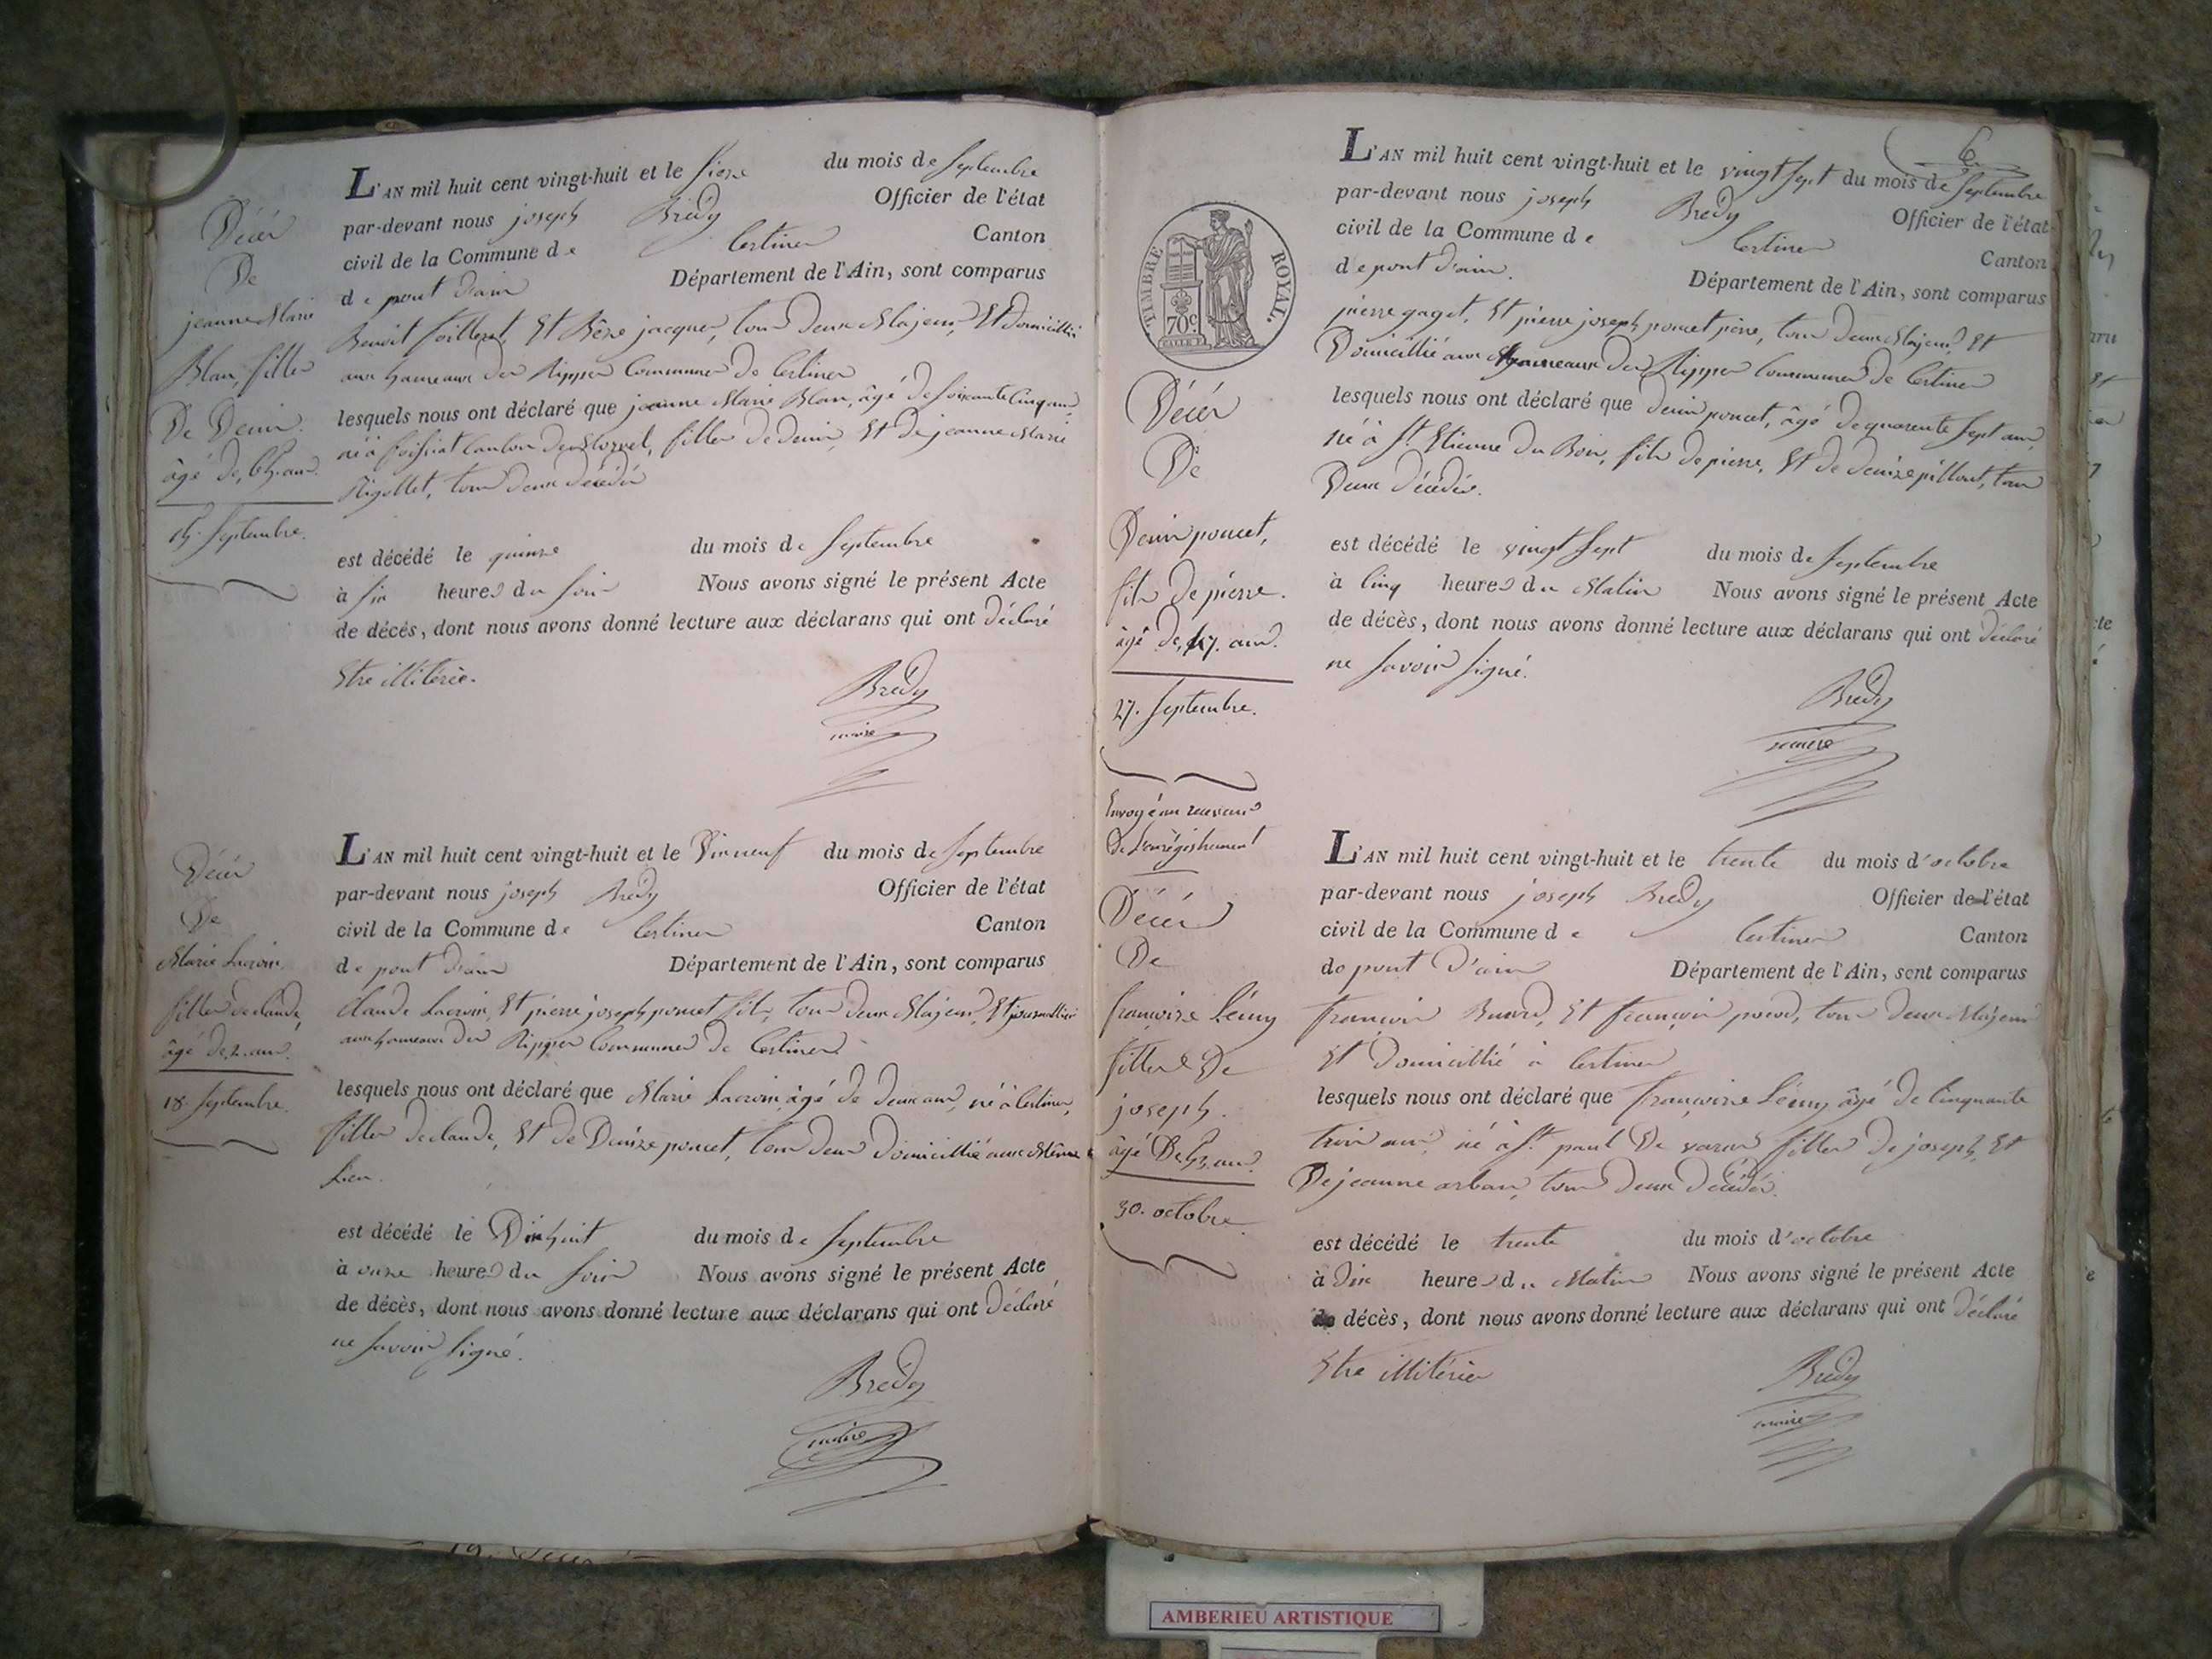 Décès
De
jeanne Marie
Blanc, fille
De Denis.
âgé de, 65. ans.
15. Septembre.
L'AN mil huit cent vingt-huit et le du mois de Septembre
par-devant nous joseph Brédy Officier de l'état
civil de la Commune de Certines Canton
de pont d'ain Département de l'Ain, sont comparus
Benoit Et jacques, tous deux Majeurs, Et Domicilliés
aux hameaux des Rippes Commune de Certines
lesquels nous ont déclaré que jeanne Marie Blanc, âgé de soixante Cinq ans,
né à foissiat Canton de fille de denis, Et de jeanne Marie
Rigollet, tous deux décédés
est décédé le quinze du mois de Septembre
à six heures du soir Nous avons signé le présent Acte
de décés, dont nous avons donné lecture aux déclarans qui ont Déclaré
Etre illitérés.
Brédy
maire
Décès
De
Marie Lacroix,
fille de claude,
âgé de, 2. ans.
18. Septembre.
L'AN mil huit cent vingt-huit et le Dixneuf du mois de Septembre
par-devant nous joseph Brédy Officier de l'état
civil de la Commune de Certines Canton
de pont d'ain Département de l'Ain, sont comparus
claude Lacroix, Et pierre joseph poncet fils, tous deux Majeurs, Et journallier
aux hameaux des Rippes Commune de Certines.
lesquels nous ont déclaré que Marie Lacroix, âgé de deux ans, né à Certines,
fille de claude, Et de Denize poncet, tous deux domicillié aux Même
Lieu.
est décédé le Dixhuit du mois de Septembre
à onze heures du soir Nous avons signé le présent Acte
de décès, dont nous avons donné lecture aux déclarans qui ont Déclaré
ne savoir signé.
Brédy
maire
6
TIMBRE ROYAL.
70c
Décès
De
Denis poncet,
fils de pierre.
âgé de, 47. ans.
27. Septembre.
L'AN mil huit cent vingt-huit et le vingt sept du mois de Septembre
par-devant nous joseph Brédy Officier de l'état
civil de la Commune de Certines Canton
de pont d'ain. Département de l'Ain, sont comparus
pierre gaget, Et pierre joseph poncet père, tous deux Majeurs, Et
Domicillié aux hameaux des Rippes Commune de Certines
lesquels nous ont déclaré que denis poncet, âgé de quarente sept ans,
né à St. Etienne du Bois, fils de pierre, Et de denize pillout, tous
Deux Décédés.
est décédé le vingt sept du mois de Septembre
à Cinq heures du Matin Nous avons signé le présent Acte
de décès, dont nous avons donné lecture aux déclarans qui ont déclaré
ne savoir signé.
Brédy
maire
Envoyé au receveur
De L'enrégistrement
Décès
De
françoise Lémy
fille De
joseph.
âgé De 53. ans.
30. octobre
L'AN mil huit cent vingt-huit et le trente du mois d'octobre
par-devant nous joseph Brédy Officier de l'état
civil de la Commune de Certines Canton
de pont d'ain Département de l'Ain, sont comparus
françois Buard, Et françois tous deux Majeurs
Et Domicillié à Certines
lesquels nous ont déclaré que françoise Lémy âgé de Cinquante
trois ans, né à St. paul De varax fille De joseph, Et
De jeanne arban, tous deux Décédés.
est décédé le trente du mois d'octobre
à Dix heures du Matin Nous avons signé le présent Acte
de décès, dont nous avons donné lecture aux déclarans qui ont déclaré
Etre illitérés
Brédy
maire
AMBERIEU ARTISTIQUE